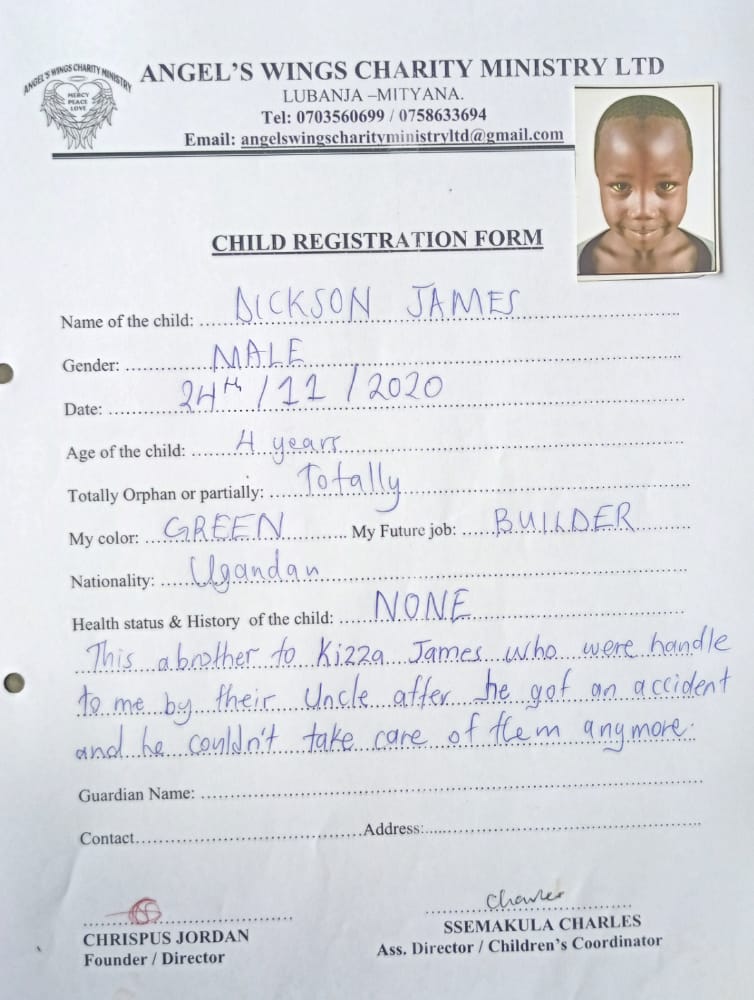 ANGEL'S WINGS CHARITY MINISTRY
MERCY
PEACE
LOVE
ANGEL'S WINGS CHARITY MINISTRY LTD
LUBANJA –MITYANA.
Tel: 0703560699 / 0758633694
Email: angelswingscharityministryltd@gmail.com
CHILD REGISTRATION FORM
Name of the child: DICKSON JAMES
Gender: MALE
Date: 24th / 11 / 2020
Age of the child: 4 years
Totally Orphan or partially: Totally
My color: GREEN My Future job: BUILDER
Nationality: Ugandan
Health status & History of the child: NONE
This a brother to Kizza James who were handle
to me by their Uncle after he got an accident
and he couldn't take care of them anymore.
Guardian Name:
Contact Address:
Charles
CHRISPUS JORDAN SSEMAKULA CHARLES
Founder / Director Ass. Director / Children's Coordinator